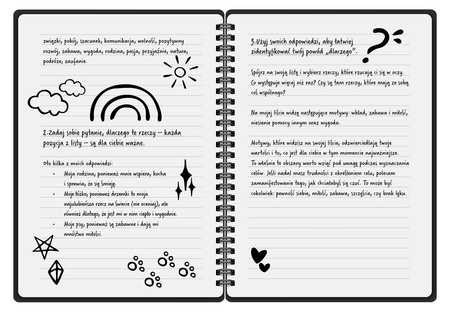 związki, pokój, szacunek, komunikacja, wolność, pozytywny
rozwój, zabawa, wygoda, rodzina, pasja, przyjaźnie, natura,
podróże, zaufanie.
2.Zadaj sobie pytanie, dlaczego te rzeczy – każda
pozycja z listy – są dla ciebie ważne.
Oto kilka z moich odpowiedzi:
• Moja rodzina, ponieważ mnie wspiera, kocha
i sprawia, że się śmieję.
• Moje łóżko, ponieważ drzemki to moja
najulubieńsza rzecz na świecie (nie oceniaj), ale
również dlatego, że jest mi w nim ciepło i wygodnie.
• Moje psy, ponieważ są zabawne i dają mi
mnóstwo miłości.
3.Użyj swoich odpowiedzi, aby łatwiej
zidentyfikować twój powód „dlaczego".
Spójrz na swoją listę i wybierz rzeczy, które rzucają ci się w oczy.
Co występuje więcej niż raz? Czy są tam rzeczy, które mają ze sobą
coś wspólnego?
Na mojej liście widzę następujące motywy: wkład, zabawa i miłość,
niesienie pomocy innym oraz wygoda.
Motywy, które widzisz na swojej liście, odzwierciedlają twoje
wartości i to, co jest dla ciebie w tym momencie w życiu ważne.
To właśnie te obszary warto wziąć pod uwagę podczas wyznaczania
celów. Jeśli nadal masz trudności z określeniem celu, polecam
zamanifestowanie tego, jak chciałabyś się czuć. To może być
cokolwiek: pewność siebie, miłość, zabawa, szczęście, czy brak lęku.